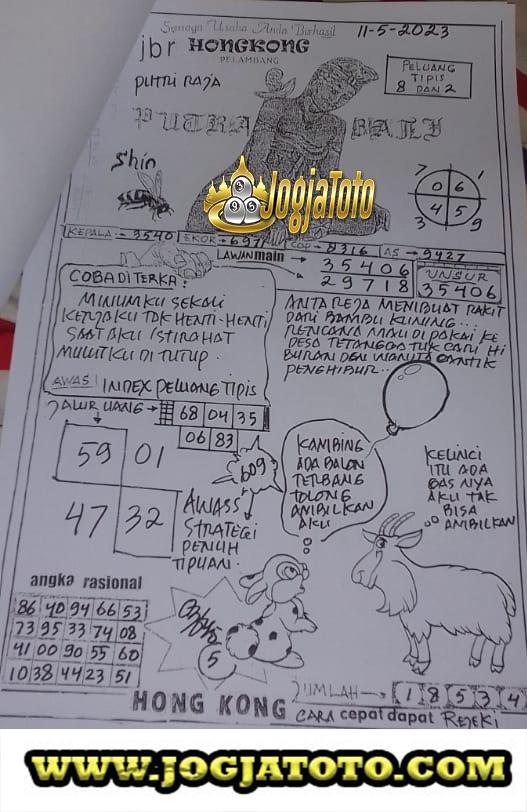 Semoga Usaha Anda Berhasil
11-5-2023
jbr HONGKONG
PELAMBANG
PUTRI RAJA
PELUANG
TIPIS
8 DAN 2
PUTRA BALI
Shin
JOGJATOTO
7 1
0 6
4 5
3 9
KEPALA:- 3540 EKOR:- 6971 COP:- 8316 AS:- 9427
LAWAN main →
35406
29718
UNSUR
35406
COBA DI TERKA:
MINUMKU SEKALI
KERJAKU TAK HENTI-HENTI
SAAT AKU ISTIRAHAT
MULUTKU DI TUTUP.
AWAS! INDEX PELUANG TIPIS
ANTAREJA MEMBUAT RAKIT
DARI BAMBU KUNING...
RENCANA MAU DI PAKAI KE
DESA TETANGGA TUK CARI HI
BURAN DEN WANITA CANTIK
PENGHIBUR..
JALUR UANG →
68 04 35
06 83
59 01
47 32
609
AWASS
STRATEGI
PENUH
TIPUAN.
KAMBING
ADA BALON
TERBANG
TOLONG
AMBILKAN
AKU
KELINCI
ITU ADA
GAS NYA
AKU TAK
BISA
AMBILKAN
angka rasional
86 40 94 66 53
73 95 33 74 08
41 00 90 55 60
10 38 44 23 51
5
JUMLAH → 1 8 5 3 4
HONG KONG CARA cepat dapat REJEKI
WWW.JOGJATOTO.COM